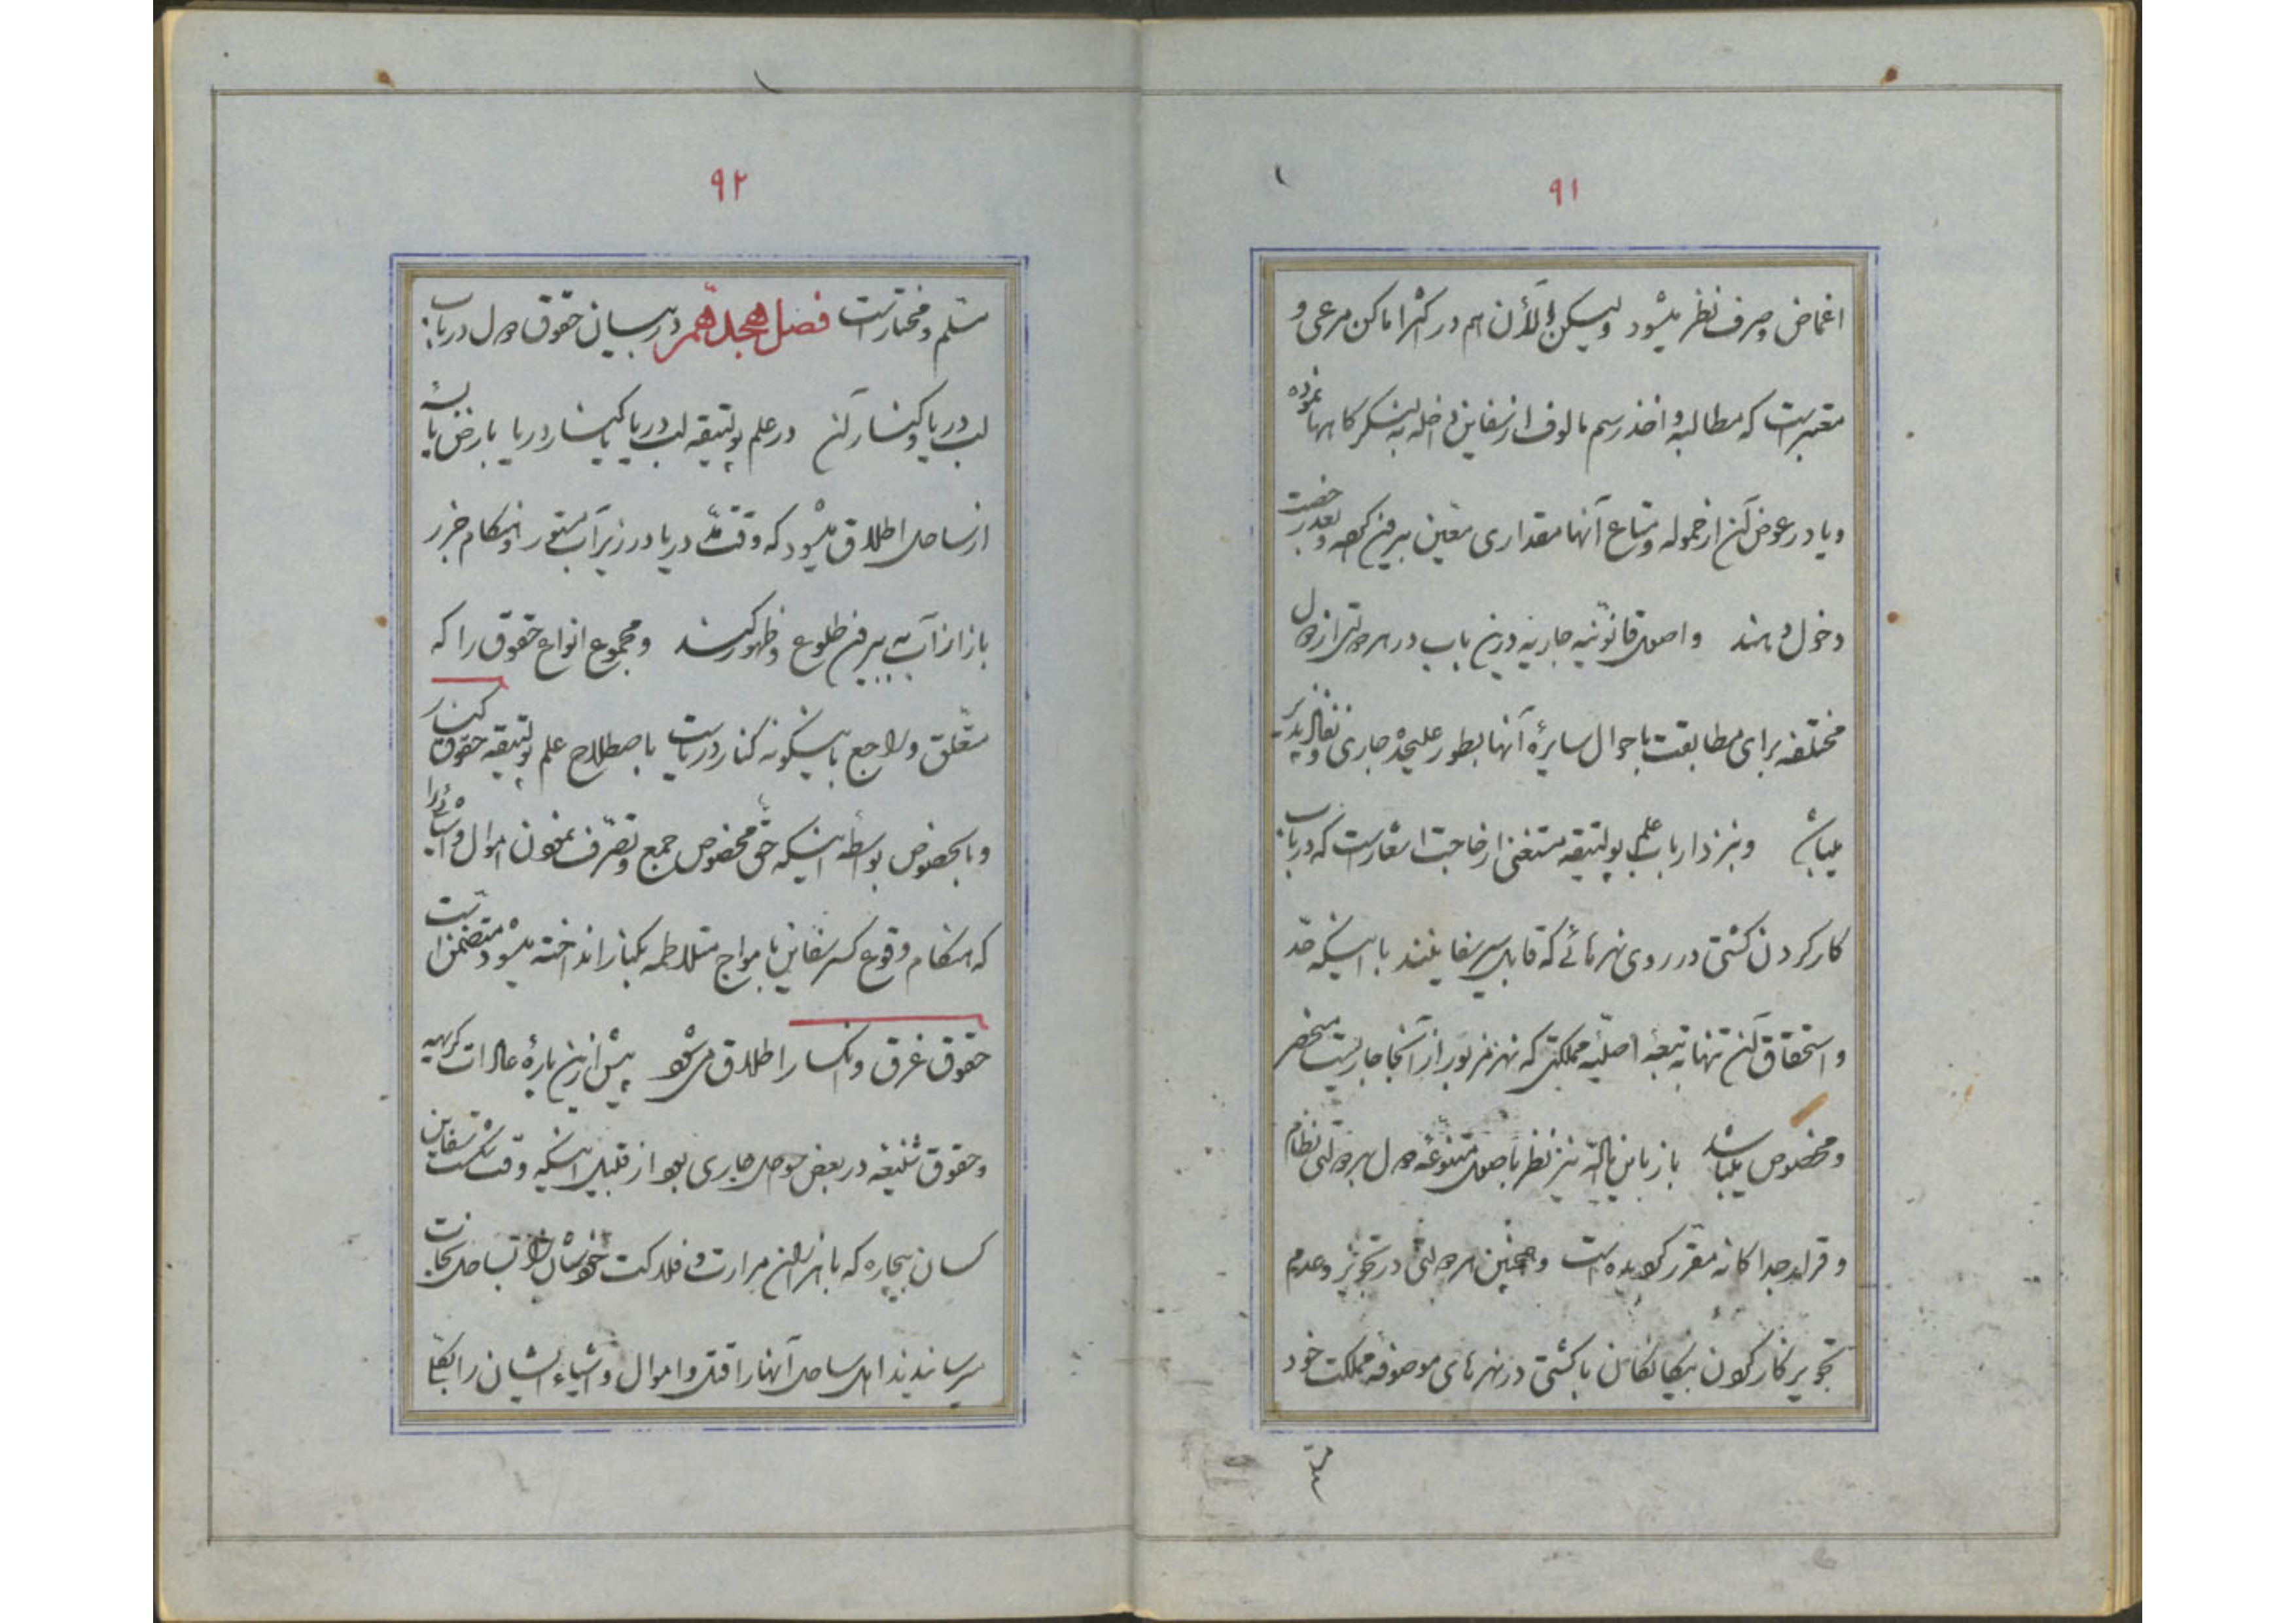 ۹۱
اغماض و صرف نظر میشود ولیکن الآن هم در اکثر اماکن مرعی و
معتبر است که مطالبه و اخذ رسم مالوف از سفاین داخله به لنگرگاهها نموده
و یا در عوض آن از حموله و متاع آنها مقداری معین بیرون کرده و بعد رخصت
دخول دهند و اصول قانونیه جاریه درین باب در هر دولتی از دول
مختلفه برای مطابقت باحوال سایرهٔ آنها بطور علیحده جاری و نفاذپذیر
میباشد و نیز نزد ارباب علم بولتیقه مستغنی از حاجت اشعار است که در باب
کار کردن کشتی در روی نهرهائی که قابل سیر سفاینند با اینکه حق
و استحقاق آن تنها به تبعهٔ اصلیهٔ مملکتی که نهر مزبور از آنجا جاریست منحصر
و مخصوص میباشد باز باین ماده نیز نظر باصول متنوعهٔ دول هر دولتی نظام
و قرار جداگانه مقرر گردیده است و همچنین هر دولتی در تجویز و عدم
تجویز کار کردن بیگانگان با کشتی در نهرهای موصوفهٔ مملکت خود
۹۲
مسلم و مختار است فصل هجدهم در بیان حقوق دول در باب
لب دریا و کنار آن در علم بولتیقه لب دریا یا کنار دریا بارض یابسهٔ
از ساحل اطلاق میشود که وقت مدّ دریا در زیر آب مستور و هنگام جزر
باز از آب به بیرون طلوع و ظهور کند و مجموع انواع حقوق را که
متعلق و راجع باینگونه کنار دریاست باصطلاح علم بولتیقه حقوق کنار
و بالخصوص بواسطه اینکه حق مخصوص جمع و تصرف نمودن اموال و اشیائی را
که هنگام وقوع کسر سفاین بامواج متلاطمه بکنار انداخته میشود متضمن است
حقوق غرق و انکسار اطلاق می‌شود پیش ازین پارهٔ عادات کریهه
و حقوق شنیعه در بعض سواحل جاری بود از قبیل اینکه وقت شکست سفاین
کسان بیچاره که با هزاران مرارت و فلاکت خودشان را بساحل نجات
میرسانیدند اهل ساحل آنها را قتل و اموال و اشیاء ایشان را بکلی